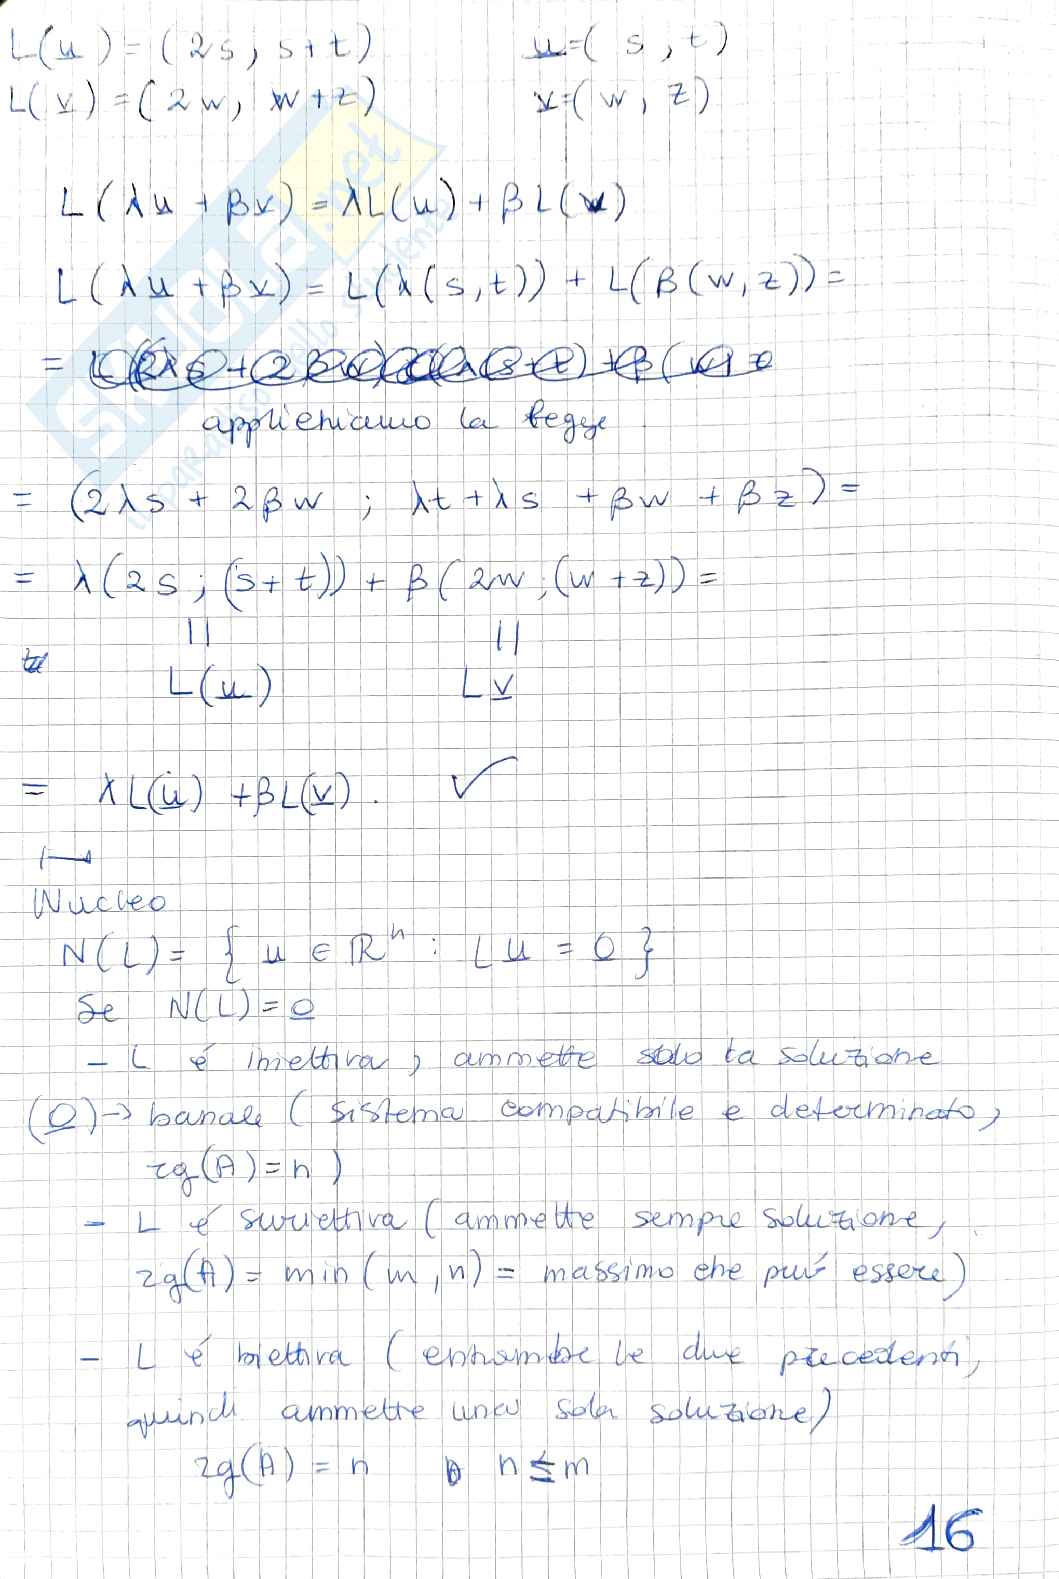 L(u) = (2s, s+t) u=(s, t)
L(v) = (2w, w+z) v=(w, z)
L(λu + βv) = λL(u) + βL(v)
L(λu + βv) = L(λ(s,t)) + L(β(w,z)) =
=
applichiamo la legge
= (2λs + 2βw ; λt+λs + βw + βz) =
= λ(2s ; (s+t)) + β(2w ; (w+z)) =
|| ||
L(u) Lv
= λL(u) + βL(v). ✓
Nucleo
N(L) = { u ∈ ℝⁿ : Lu = 0 }
Se N(L)=0
- L é iniettiva, ammette solo la soluzione
(0)→ banale (sistema compatibile e determinato,
rg(A)=n)
- L é suriettiva (ammette sempre soluzione,
rg(A) = min(m,n) = massimo che puó essere)
- L é biettiva (entrambe le due precedenti,
quindi ammette una sola soluzione)
rg(A) = n n≤m
16
SKUOLA.net